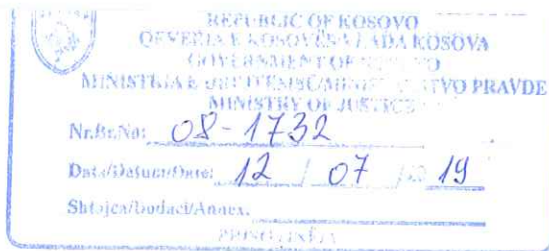 REPUBLIC OF KOSOVO
QEVERIA E KOSOVËS VLADA KOSOVA
GOVERNMENT OF
MINISTRIA E MINISTARSTVO PRAVDE
MINISTRY OF JUSTICE
Nr.Br.No: 08-1732
Data/Datum/Date: 12 / 07 / 19
Shtojca/Dodaci/Annex.